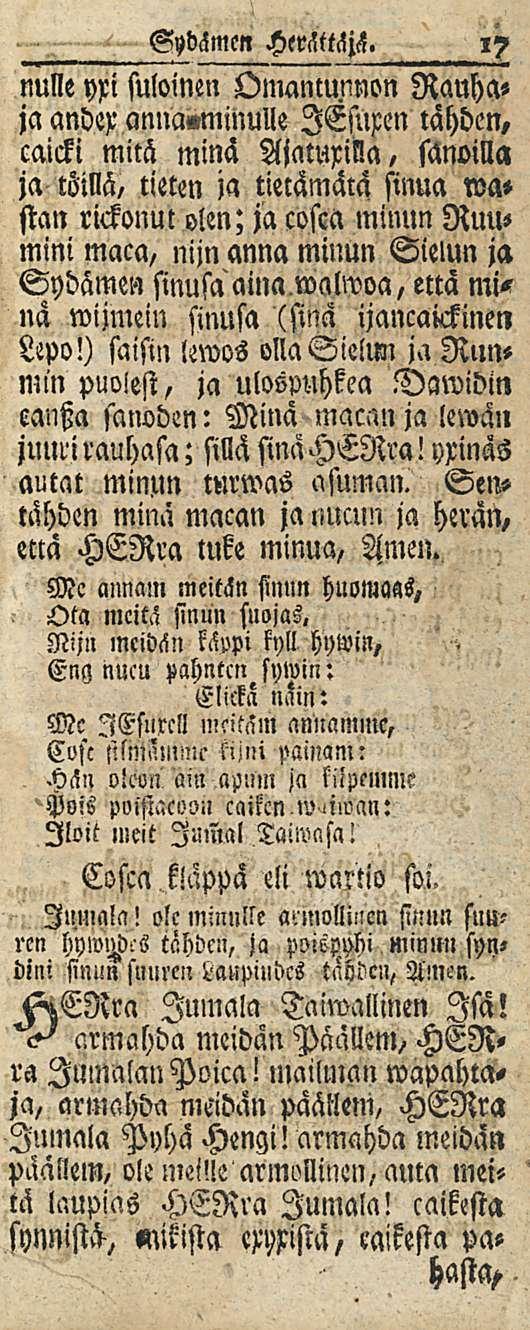 Sydämen Herättäjä. 17
nulle yxi suloinen Omantunnon Rauha-
ja andex anna minulle JEsuxen tähden,
caicki mitä minä Ajatuxilla, sanoilla
ja töillä, tieten ja tietämätä sinua wa-
stan rickonut olen; ja cosca minun Ruu-
mini maca, nijn anna minun Sielun ja
Sydämen sinusa aina walwoa, että mi-
nä wijmein sinusa (sinä ijancaickinen
Lepo!) saisin lewos olla Sielun ja Run-
min puolest, ja ulospuhkea Dawidin
canßa sanoden: Minä macan ja lewän
juuri rauhasa; sillä sinä HERra! yxinäs
autat minun turwas asuman. Sen-
tähden minä macan ja nucun ja herän,
että HERra tuke minua, Amen.
Me annam meitän sinun huomaas,
Ota meitä sinun suojas,
Nijn meidän käppi kyll hywin,
Eng nucu pahnten sywin:
Elickä näin:
Me JEsuxell meitäm annamme,
Cosc silmämme kijni painam:
Hän olcon ain apum ja kilpemme
Pois poistacoon caiken waiwan:
Iloit meit Jum̃al Taiwasa!
Cosca kläppä eli wartio soi.
Jumala! ole minulle armollinen sinun suu-
ren hywydes tähden, ja poispyhi minun syn-
dini sinun suuren Laupiudes tähden, Amen.
HERra Jumala Taiwallinen Isä!
armahda meidän Päällem, HER-
ra Jumalan Poica! mailman wapahta-
ja, armahda meidän päällem, HERra
Jumala Pyhä Hengi! armahda meidän
päällem, ole meille armollinen, auta mei-
tä laupias HERra Jumala! caikesta
synnistä, caikista exyxistä, caikesta pa-
hasta,